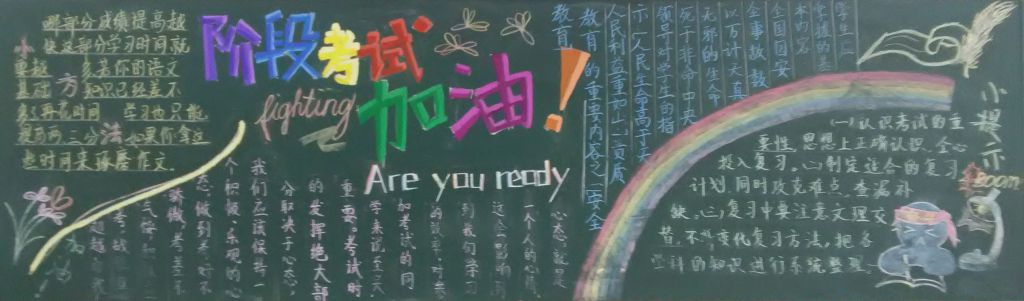 哪部分成绩提高越
快这部分学习时间就
要越
多若你的语文
基础
知识已经差不
多了再花时间
学习也只能
得两三分
如果你拿这
些时间来琢磨作文
小
方
法
阶段考试
加油!
fighting
Are you ready
心态就是
一个人的心情
这会影响
到我们学习
的效率,对于
和考试的同
学来说至关
重要。考试时
的发挥绝大部
分取决于心态,
我们应该保持一
个积极、乐观的心
态,做到考好不
骄傲,考差不
学生应
掌握的基
本内容
全国因安
全事故数
以万计天真
无邪的生命
死于非命中央
领导对学生的指
示,人民生命高于天
人民利益重如山,质
教育的重要内容之一安全
教育
小提示
(一)认识考试的重
要性,思想上正确认识,全心
投入复习。(二)制定适合的复习
计划,同时攻克难点,查漏补
缺。(三)复习中要注意文理交
替,不断变化复习方法,把各
学科的知识进行系统整理。